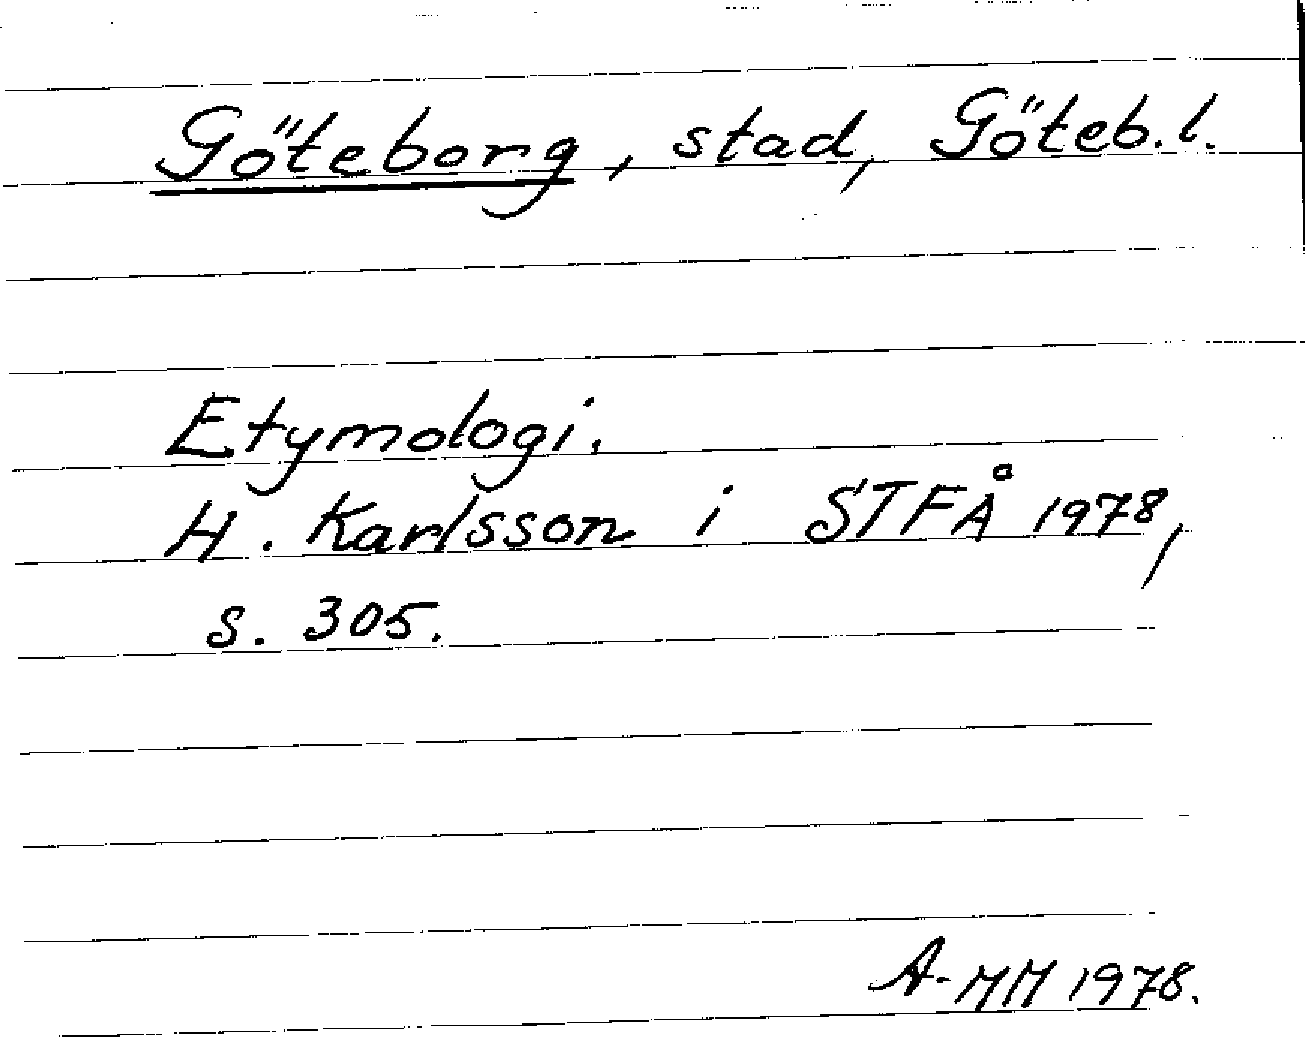 Göteborg, stad, Göteb.l.
Etymologi.
H. Karlsson i STFÅ 1978,
s. 305.
A-MM 1978.